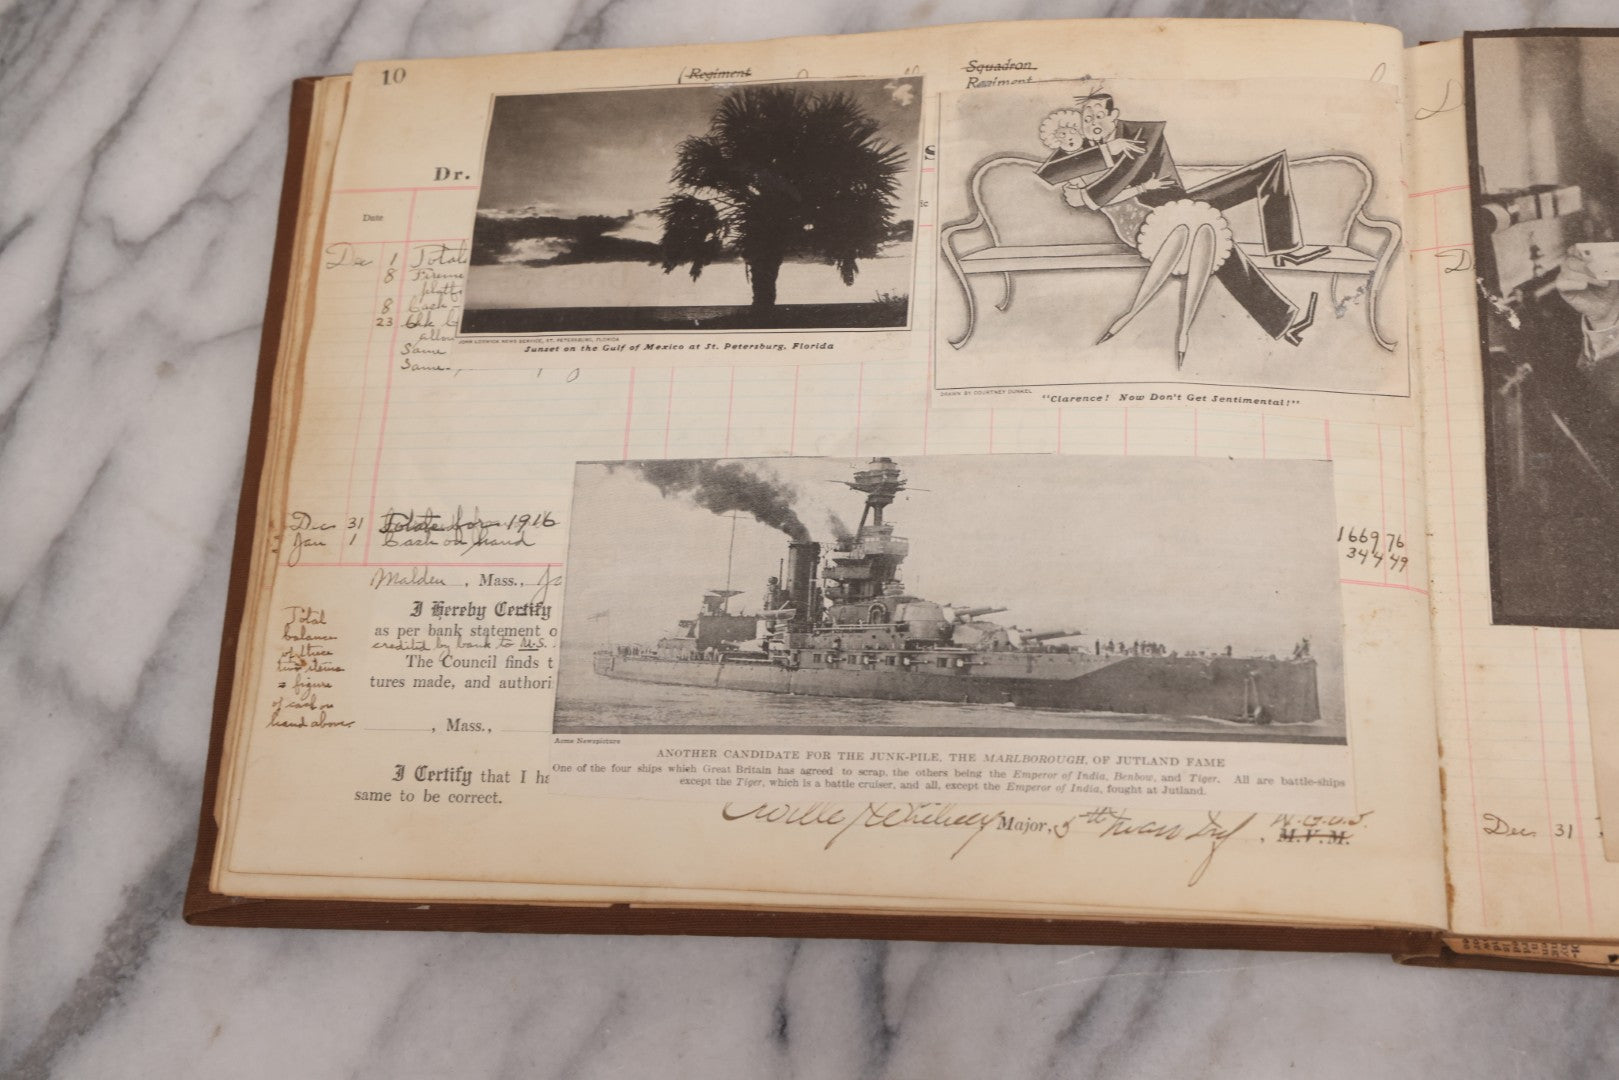 10
Regiment
Squadron
Regiment
Dr.
S
Date
Dec 1 Totals
8
8 Cash
23
Same
Same
JOHN LODWICK NEWS SERVICE, ST. PETERSBURG, FLORIDA
Sunset on the Gulf of Mexico at St. Petersburg, Florida
DRAWN BY COURTNEY DUNKEL
"Clarence! Now Don't Get Sentimental!"
Dec 31 Totals for 1916
Jan 1 Cash on hand
1669 76
344 49
Malden, Mass.,
I Hereby Certify
as per bank statement o
credited by bank to U.S.
The Council finds t
tures made, and authori
, Mass.,
I Certify that I ha
same to be correct.
Total
balance
of these
two items
= figure
of cash on
hand above
Acme Newspicture
ANOTHER CANDIDATE FOR THE JUNK-PILE, THE MARLBOROUGH, OF JUTLAND FAME
One of the four ships which Great Britain has agreed to scrap, the others being the Emperor of India, Benbow, and Tiger. All are battle-ships
except the Tiger, which is a battle cruiser, and all, except the Emperor of India, fought at Jutland.
Major, 5th Mass Inf, N.G.U.S.
M.V.M.
Dec 31